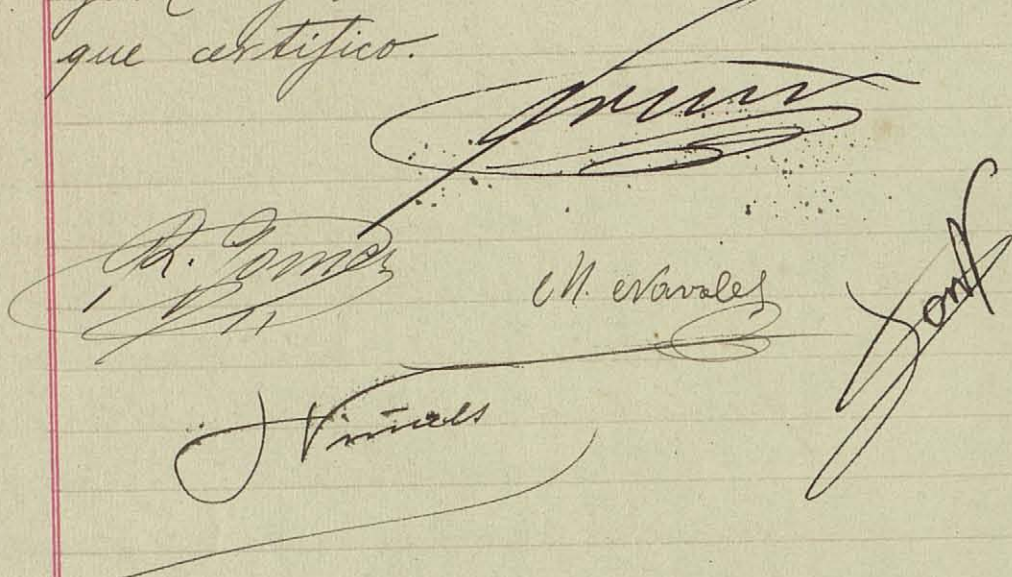 que certifico.
R. Gomez
M. Navales
Font
J Viñals